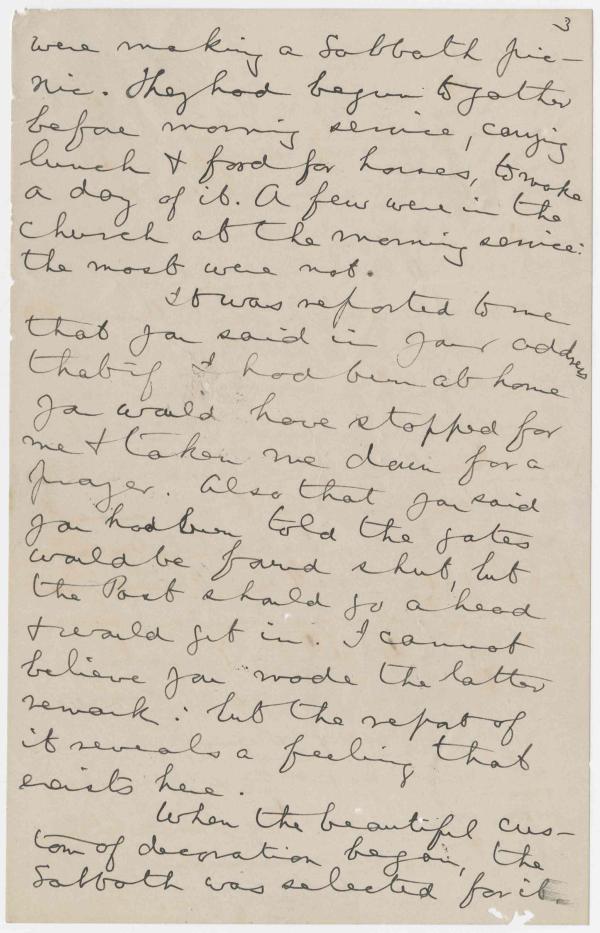 3
were making a Sabbath pic-
nic. They had begun to gather
before morning service, carrying
lunch & food for horses, to make
a day of it. A few were in the
church at the morning service:
the most were not.
It was reported to me
that you said in your address
that if I had been at home
you would have stopped for
me & taken me down for a
prayer. Also that you said
you had been told the gates
would be found shut, but
the Post should go ahead
& would get in. I cannot
believe you made the latter
remark: but the report of
it reveals a feeling that
exists here.
When the beautiful cus-
tom of decoration began, the
Sabbath was selected for it.